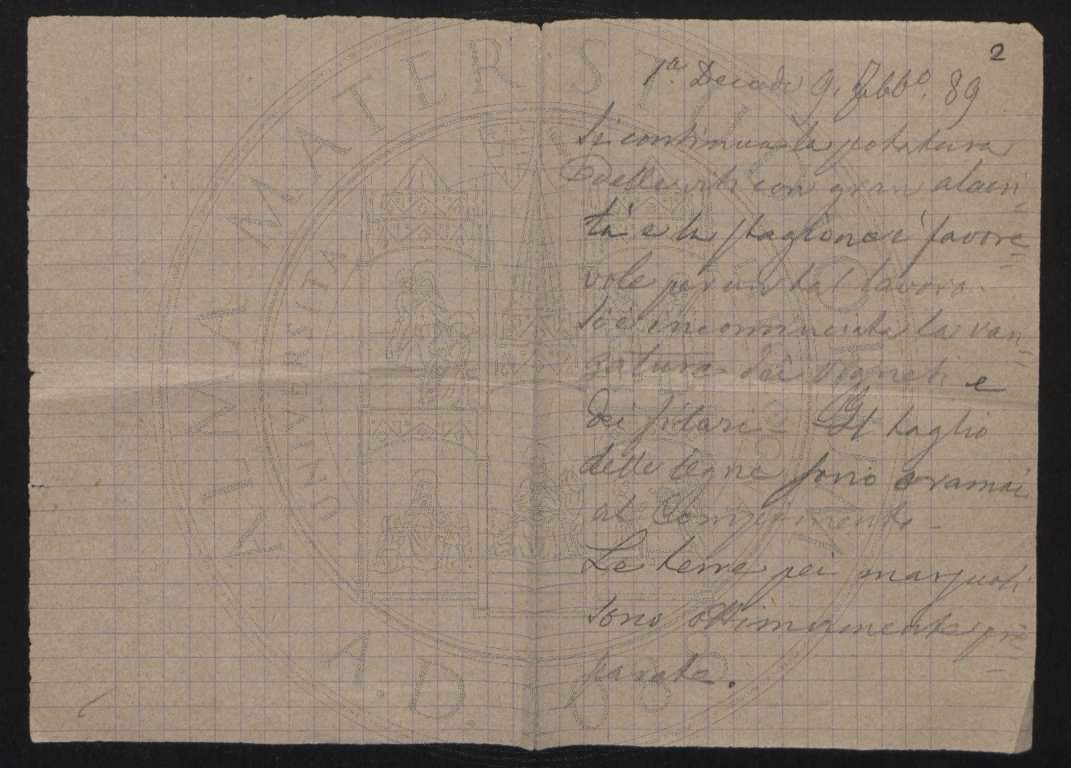 2
1ª. Decade 9. Febbº. 89
Si continua la potatura
delle viti con gran alacri-
tà e la stagione è favore-
vole per un tal lavoro.
Si è incominciata la van-
gatura dei vigneti e
dei filari - Il taglio
delle legne sono oramai
al Compimento -
Le terre pei marzuoli
sono ottimamente pre-
parate.
ALMA MATER STUDIORUM
UNIVERSITA
A.D. 1088